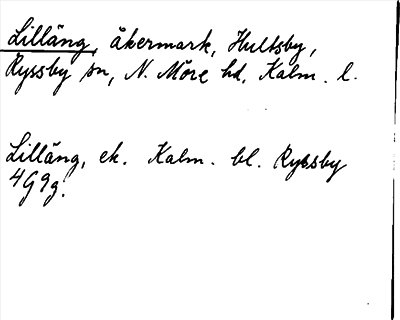 Lilläng, åkermark, Hultsby,
Ryssby sn, N. Möre hd, Kalm. l.
Lilläng, ek. Kalm. bl. Ryssby
4G9g.